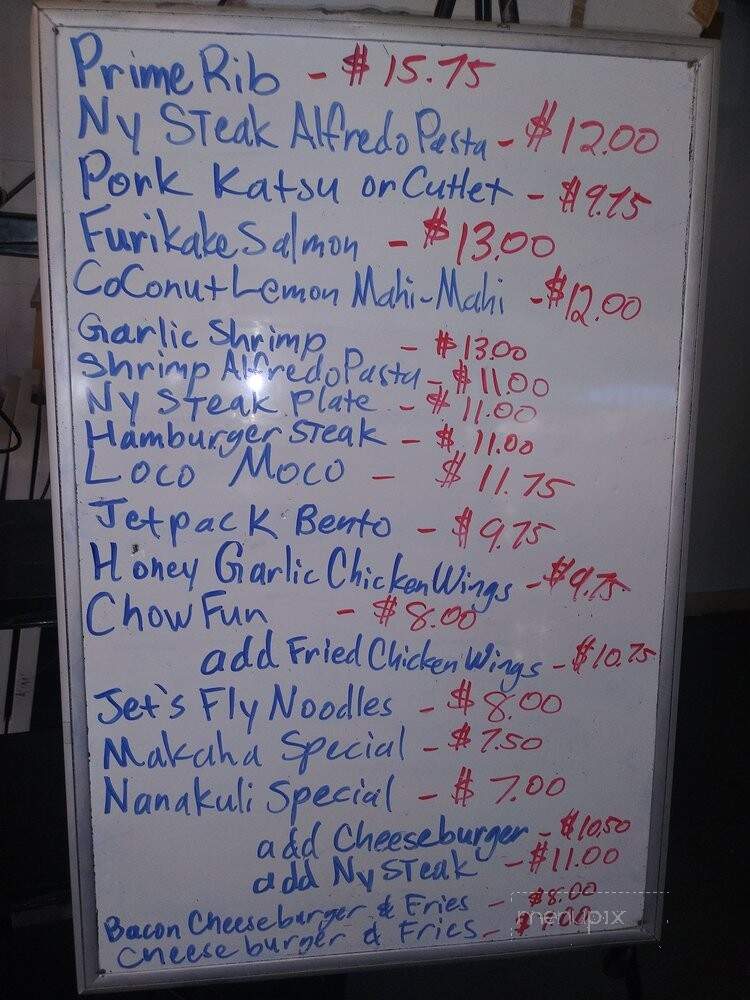 Prime Rib - $15.75
Ny Steak Alfredo Pasta - $12.00
Pork Katsu or Cutlet - $9.75
Furikake Salmon - $13.00
Coconut Lemon Mahi-Mahi - $12.00
Garlic Shrimp - $13.00
Shrimp Alfredo Pasta - $11.00
Ny Steak Plate - $11.00
Hamburger Steak - $11.00
Loco Moco - $11.75
Jetpack Bento - $9.75
Honey Garlic Chicken Wings - $9.75
Chow Fun - $8.00
add Fried Chicken Wings - $10.75
Jet's Fly Noodles - $8.00
Makaha Special - $7.50
Nanakuli Special - $7.00
add Cheeseburger - $10.50
add Ny Steak - $11.00
Bacon Cheeseburger & Fries - $8.00
Cheeseburger & Fries - $7.00
menupix